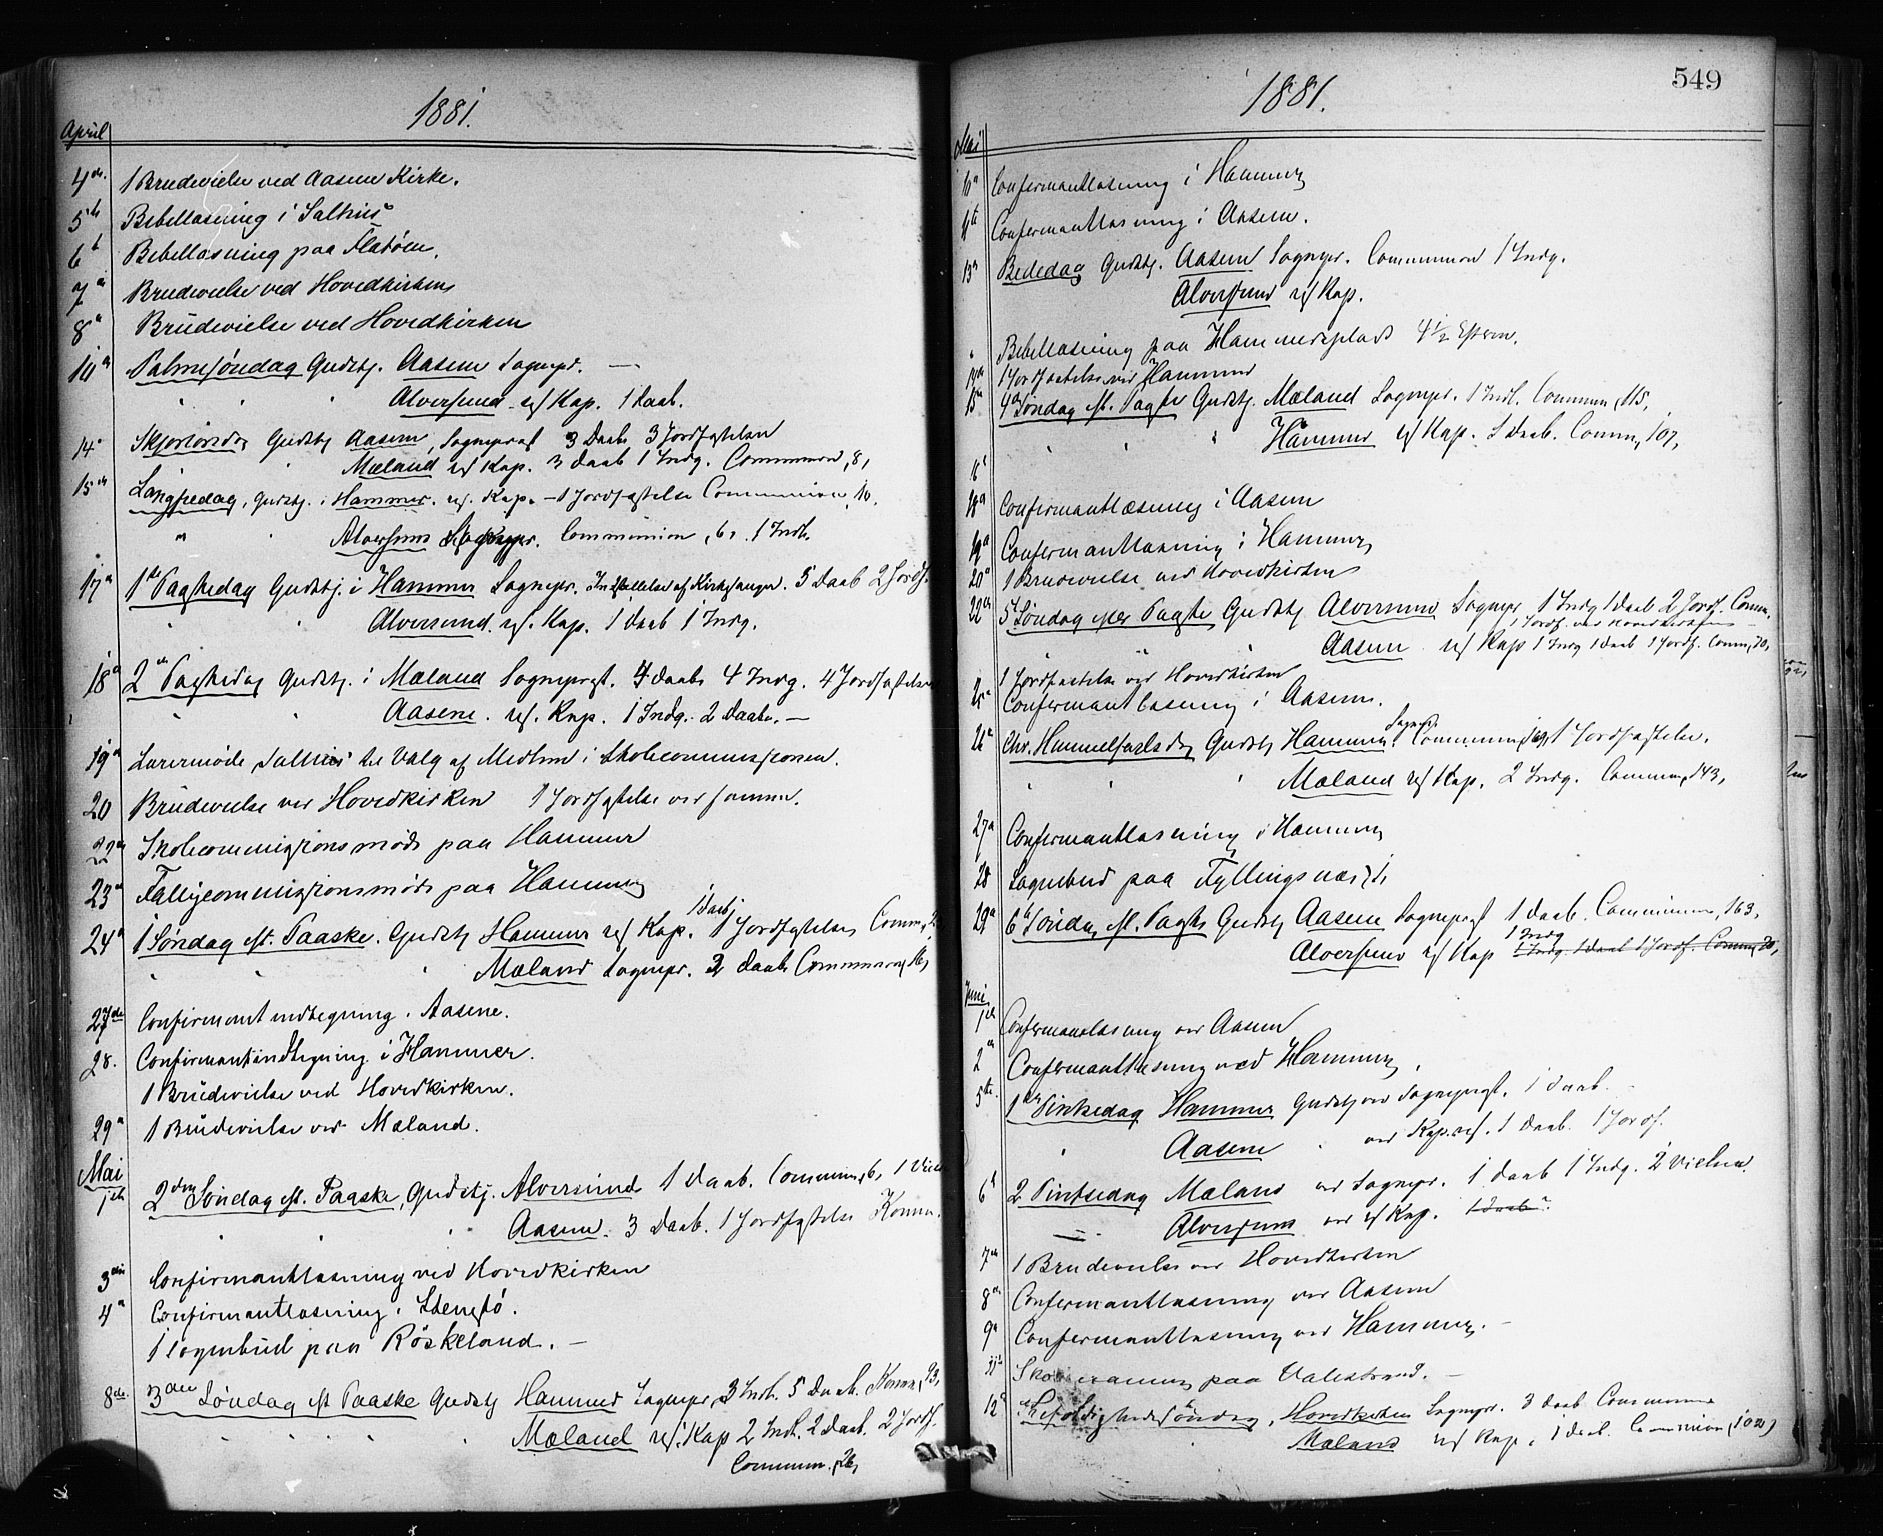 1881.
April
4de 1 Brudevielse ved Aasene Kirke.
5te Bibellæsning i Salhus
6t Bibellæsning paa Flatöen.
7de Brudevielse ved Hovedkirken
8de Brudevielse ved Hovedkirken
10de Palmesöndag Gudstj. Aasene Sognepr. —
" " " Alversund res. Kap. 1 Daab.
14de Skjærtorsdag Gudstj Aasene, Sogneprst 3 Daab 3 Jordfæstelser
Mæland res. Kap. 3 Daab 1 Indg. Communion, 8,
15de Langfredag, Gudstj. i Hammer. res. Kap. – 1 Jordfæstelse Communion, 10.
" " Alversund Sognepr. Communion, 61. 1 Indl.
17de 1ste Paaskedag Gudstj. i Hammer Sognepr. Indsættelse af Kirkesanger. 5 Daab 2 Jordf.
" " Alversund. res. Kap. 1 Daab 1 Indg.
18de 2den Paaskedag Gudstj. i Mæland Sogneprst. 4 Daab 4 Indg. 4 Jordfæstelser
" " Aasene. res. Kap. 1 Indg. 2 Daab. —
19de Lærermöde Salhus til Valg af Medlem i Skolecommissionen.
20 Brudevielse ved Hovedkirken 1 Jordfæstelse ved samme.
22de Skolecommissionsmöde paa Hammer
23de Fattigcommissionsmöde paa Hammer
24de 1 Söndag eft. Paaske. Gudstj Hammer res Kap. 1 Daab, 1 Jordfæstelse, Comm,
" " " Mæland Sognepr. 2 Daab Communion, 16,
27de Confirmantindtegning i Aasene.
28. Confirmantindtegning i Hammer.
1 Brudevielse ved Hovedkirken.
29de 1 Brudevielse ved Mæland.
Mai
1ste 2den Söndag eft. Paaske, Gudstj. Alversund 1 Daab. Commun, 6, 1 Viel
" " " Aasene. 3 Daab. 1 Jordfæstelse Komm.
3die Confirmantlæsning ved Hovedkirken
4de Confirmantlæsning i Stensö.
1 Sognebud paa Röskeland. —
8de. 3die Söndag eft Paaske Gudstj Hammer Sognepr, 3 Indl. 5 Daab. Komm, 93,
" " " " Mæland res. Kap 2 Indl. 2 Daab. 2 Jordf.
Commun. 26,
549
1881.
Mai
10de Confirmantlæsning i Hammer
11te Confirmantlæsning i Aasene.
13de Bededag Gudstj. Aasene Sognepr. Communion 1 Indg.
Alversund res Kap.
" Bibellæsning paa Hammersplads 4½ Efterm.
14de 1 Jordfæstelse ved Hammer
15de 4de Söndag eft. Paaske Gudstj. Mæland Sognepr. 1 Indl. Commun, 115,
" " " Hammer res Kap. 1 Daab. Comm, 107,
18de Confirmantlæsning i Aasene
19de Confirmantlæsning i Hammer
20de 1 Brudevielse ved Hovedkirken
22de 5te Söndag efter Paaske Gudstj Alversund Sognepr 1 Indg 1 Daab 2 Jordf. Comm.
1 Jordf. ved Hovedkirken
Aasene res Kap 1 Indg 1 Daab 1 Jordf. Comm, 70,
1 Jordfæstelse ved Hovedkirken
25de Confirmantlæsning i Aasene.
26de Chr. Himmelfartsdag Gudstj Hammer. Sognepr. Communion, 109, 1 Jordfæstelse.
" " " Mæland res Kap. 2 Indg. Commun, 143,
27de Confirmantlæsning i Hammer
28 Sognebud paa Fyllingsnæs 1,
29de 6te Söndag eft. Paaske Gudstj Aasene Sogneprst 1 Daab. Communion, 163,
1 Indg
Alversund res Kap 1 Indg. 1 Daab 1 Jordf. Comm, 70,
Juni
1ste Confirmantlæsning ved Aasene
2den Confirmantlæsning ved Hammer.
5te. 1ste Pintsedag Hammer Gudstj ved Sogneprst. 1 Daab. —
" Aasene " ved Kap. res. 1 Daab. 1 Jordf.
6te 2 Pintsedag Mæland ved Sognepr. 1 Daab 1 Indg. 2 Vielser.
— Alversund ved res Kap. 1 Daab.
7de 1 Brudevielse ved Hovedkirken
8de Confirmantlæsning ved Aasene
9de Confirmantlæsning ved Hammer. —
11te Skoleexamen paa Valestrand. —
12te Trefoldighedssöndag, Hovedkirken Sognepr. 3 Daab Communion
Mæland res Kap. 1 Daab. Communion, 102,